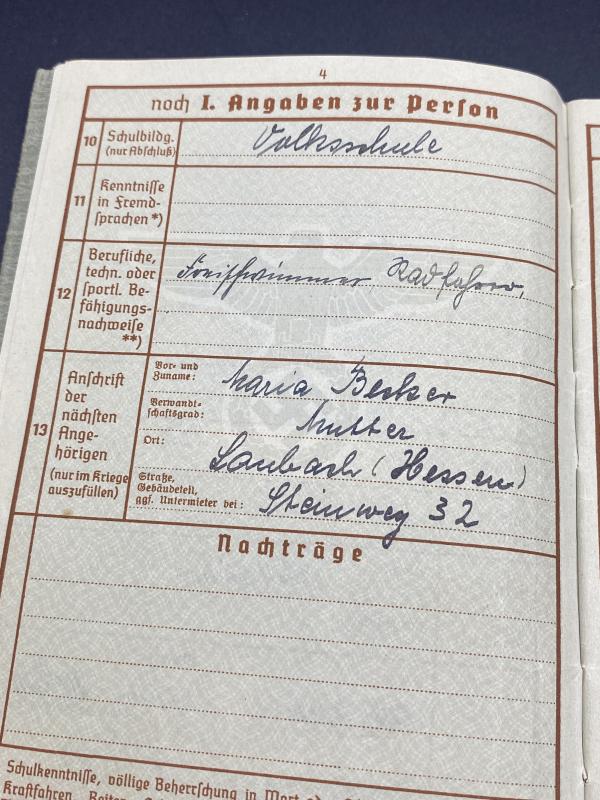 4
noch I. Angaben zur Person
10 Schulbildg. (nur Abschluß)
Volksschule
11 Kenntnisse in Fremd- sprachen *)
12 Berufliche, techn. oder sportl. Be- fähigungs- nachweise **)
Freischwimmer, Radfahrer,
13 Anschrift der nächsten Ange- hörigen (nur im Kriege auszufüllen)
Vor- und Zuname: Maria Becker
Verwandt- schaftsgrad: Mutter
Ort: Laubach (Hessen)
Straße, Gebäudeteil, ggf. Untermieter bei: Steinweg 32
Nachträge
Schulkenntnisse, völlige Beherrschung in Wort
Kraftfahren, Reiten